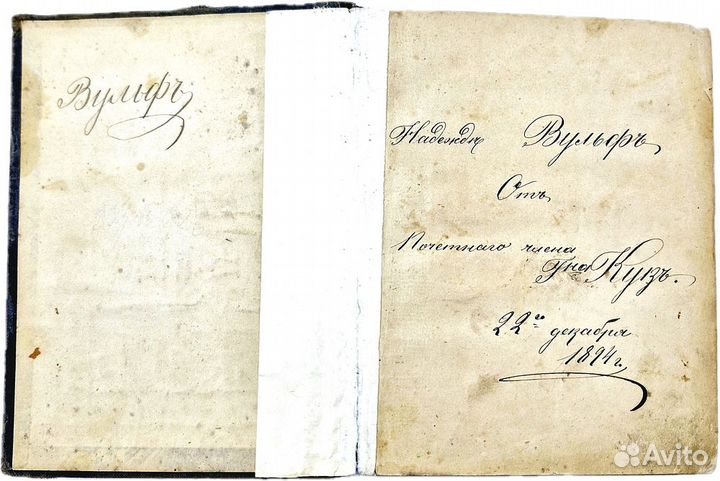 Вульфъ
Надеждѣ Вульфъ
Отъ
Почетнаго члена
Гна Кузъ.
22го декабря
1894г.
Avito